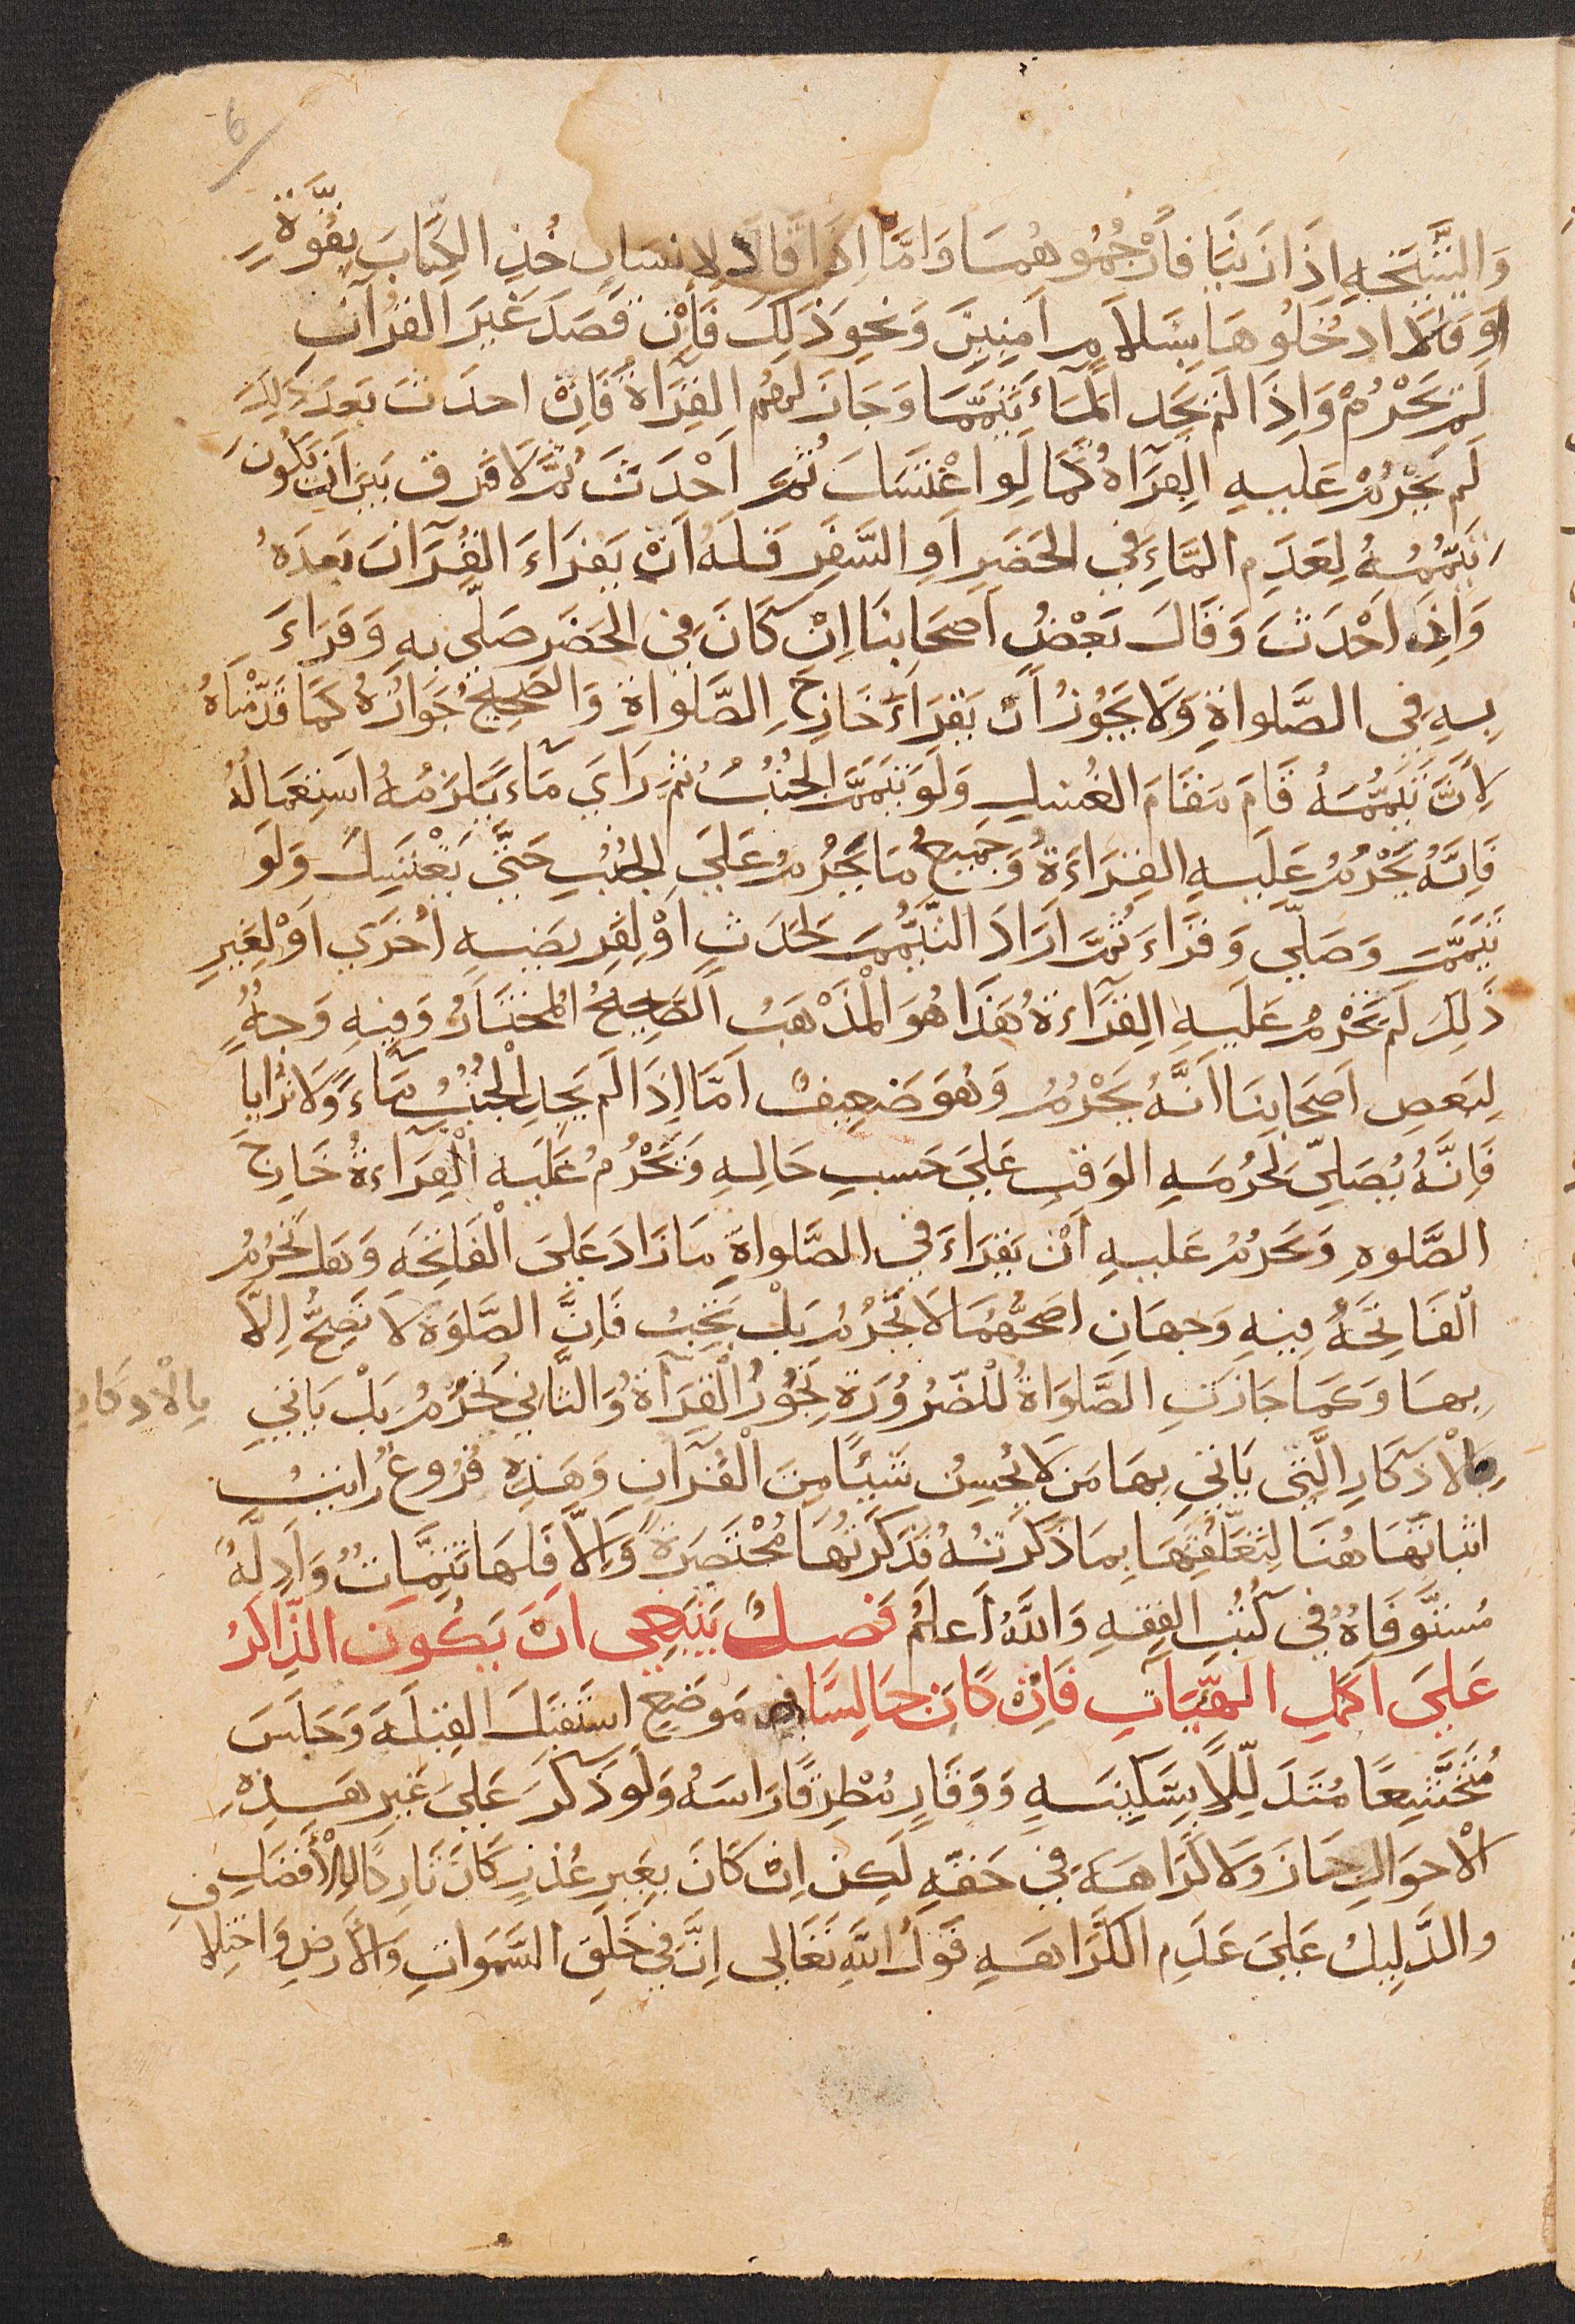 6
وَالشَّيْخَةِ اِذَا زَنَيَا فَارْجُمُوهُمَا وَاَمَّا اِذَا قَالَ لِاِنسَانٍ خُذِ الكِتَابَ بِقُوَّةٍ
اَوْ قَالَ ادخُلُوهَا بِسَلَامٍ اَمِنِينَ وَنَحْوِ ذَلِكَ فَاِنْ قَصَدَ غَيرَ القُرآنِ
لَم يَحْرُمْ وَاِذَا لَم يَجِدِ المَآءَ تَيَمَّمَا وَجَازَ لَهُم القِرَآةُ فَاِنْ احدَثَ بَعدَ ذَلِكَ
لَم يَحْرُمْ عَلَيهِ القِرَآةُ كَمَا لَو اغْتَسَلَ ثُمَّ اَحْدَثَ ثُمَّ لَا فَرقَ بَينَ اَن يَكُونَ
تَيَمُّمُهُ لِعَدَمِ المَآءِ فِي الحَضَرِ اَوِ السَّفَرِ فَلَهُ اَنْ يَقرَاءَ القُرَآنَ بَعدَهُ
وَاِن اَحْدَثَ وَقَالَ بَعْضُ اَصحَابِنَا اِنْ كَانَ فِي الحَضَرِ صَلَّى بِهِ وَقَرَاءَ
بِهِ فِى الصَّلواةِ وَلَا يَجُوزُ اَنْ يَقرَاءَ خَارِجَ الصَّلواةِ وَالصَّحِيحُ جَوَازُهُ كَمَا قَدَّمْنَاهُ
لِاَنَّ تَيَمُّمَهُ قَامَ مَقَامَ الغُسلِ وَلَو تَيَمَّمَ الجُنُبُ ثُمَّ رَاَي مَآءً يَلزَمُهُ اسْتِعمَالُهُ
فَاِنَّهُ يَحْرُمُ عَلَيهِ القِرَاءَةُ وَجَمِيعُ مَا يَحْرُمُ عَلَى الجُنُبِ حَتَّى يَغْتَسِلَ وَلَو
تَيَمَّمَ وَصَلَّى وَقَرَاءَ ثُمَّ اَرَادَ التَّيَمُّمَ لِحَدَثٍ اَوْ لِفَرِيضَةٍ اُخرَي اَوْ لِغَيرِ
ذَلِكَ لَم يَحْرُمْ عَلَيهِ القِرَآءَةُ هَذَا هُوَ الْمَذْهَبُ الصَحِيحُ المُختَارُ وَفِيهِ وَجهٌ
لِبَعضِ اَصحَابِنَا اَنَّهُ يَحْرُمُ وَهُوَ ضَعِيفٌ اَمَّا اِذَا لَم يَجِدِ الْجُنُبُ مَآءً وَلَا تُرَابًا
فَاِنَّهُ يُصَلِّى لِحُرْمَةِ الوَقتِ عَلَى حَسبِ حَالِهِ وَيَحْرُمُ عَلَيهِ القِرَاءةُ خَارِجَ
الصَّلوةِ وَيَحرُمُ عَلَيهِ اَنْ يَقرَاءَ فِي الصَّلواةِ مَا زَادَ عَلَى الْفَاتِحَةِ وَهَل تَحْرُمُ
الْفَاتِحَةُ فِيهِ وَجهَانِ اصَحُّهُمَا لَا تَحْرُمُ بَلْ يَجِبُ فَاِنَّ الصَّلوةَ لَا تَصِحُّ اِلَّا
بِهَا وَكَمَا جَازَتِ الصَّلَوَاةُ لِلضَّرُورَةِ تَجُوزُ الْقِرَآةُ وَالثَّانِي تَحْرُمُ بَلْ يَاتِي
بِالاْذكَارِ
بِالاْذكَارِ الَّتِى يَاتِي بِهَا مَن لَا يُحسِنُ شَيئًا مِنَ الْقُرَآنِ وَهَذِهِ فُرُوعٌ رَايتُ
اثبَاتَهَا هُنَا لِتَعَلُّقِهَا بِمَا ذَكَرتُهُ فَذَكَرتُهَا مُخْتَصَرَةً وَاِلَّا فَلَهَا تَتِمَّاتٌ وَاَدِلَّةٌ
مُستَوفَاةٌ فِي كُتُبِ الفِقهِ وَاللَّهُ اَعلَمُ فَصلٌ يَنبَغِي اَنْ يَكُونَ الذَّاكِرُ
عَلَى اَكمَلِ الهَيَّاتِ فَاِنْ كَانَ جَالِسًا فِي مَوضِعٍ اسْتَقبَلَ القِبلَةَ وَجَلَسَ
مُتَخَشِّعًا مُتَذَلِّلًا بِسَكِينَةٍ وَوَقَارٍ مُطرِقًا رَاسَهُ وَلَو ذَكَرَ عَلَى غَيرِ هَذِهِ
الاَحوَالِ جَازَ وَلَا كَرَاهَةَ فِي حَقِّهِ لَكِن اِنْ كَانَ بِغَيرِ عُذرٍ كَانَ تَارِكًا لِلْأَفضَلِ
وَالدَّلِيلُ عَلَى عَدَمِ الكَرَاهَةِ قَولُ اللهِ تَعَالى اِنَّ فِي خَلقِ السَّمَوَاتِ وَالأَرضِ وَاختِلَا